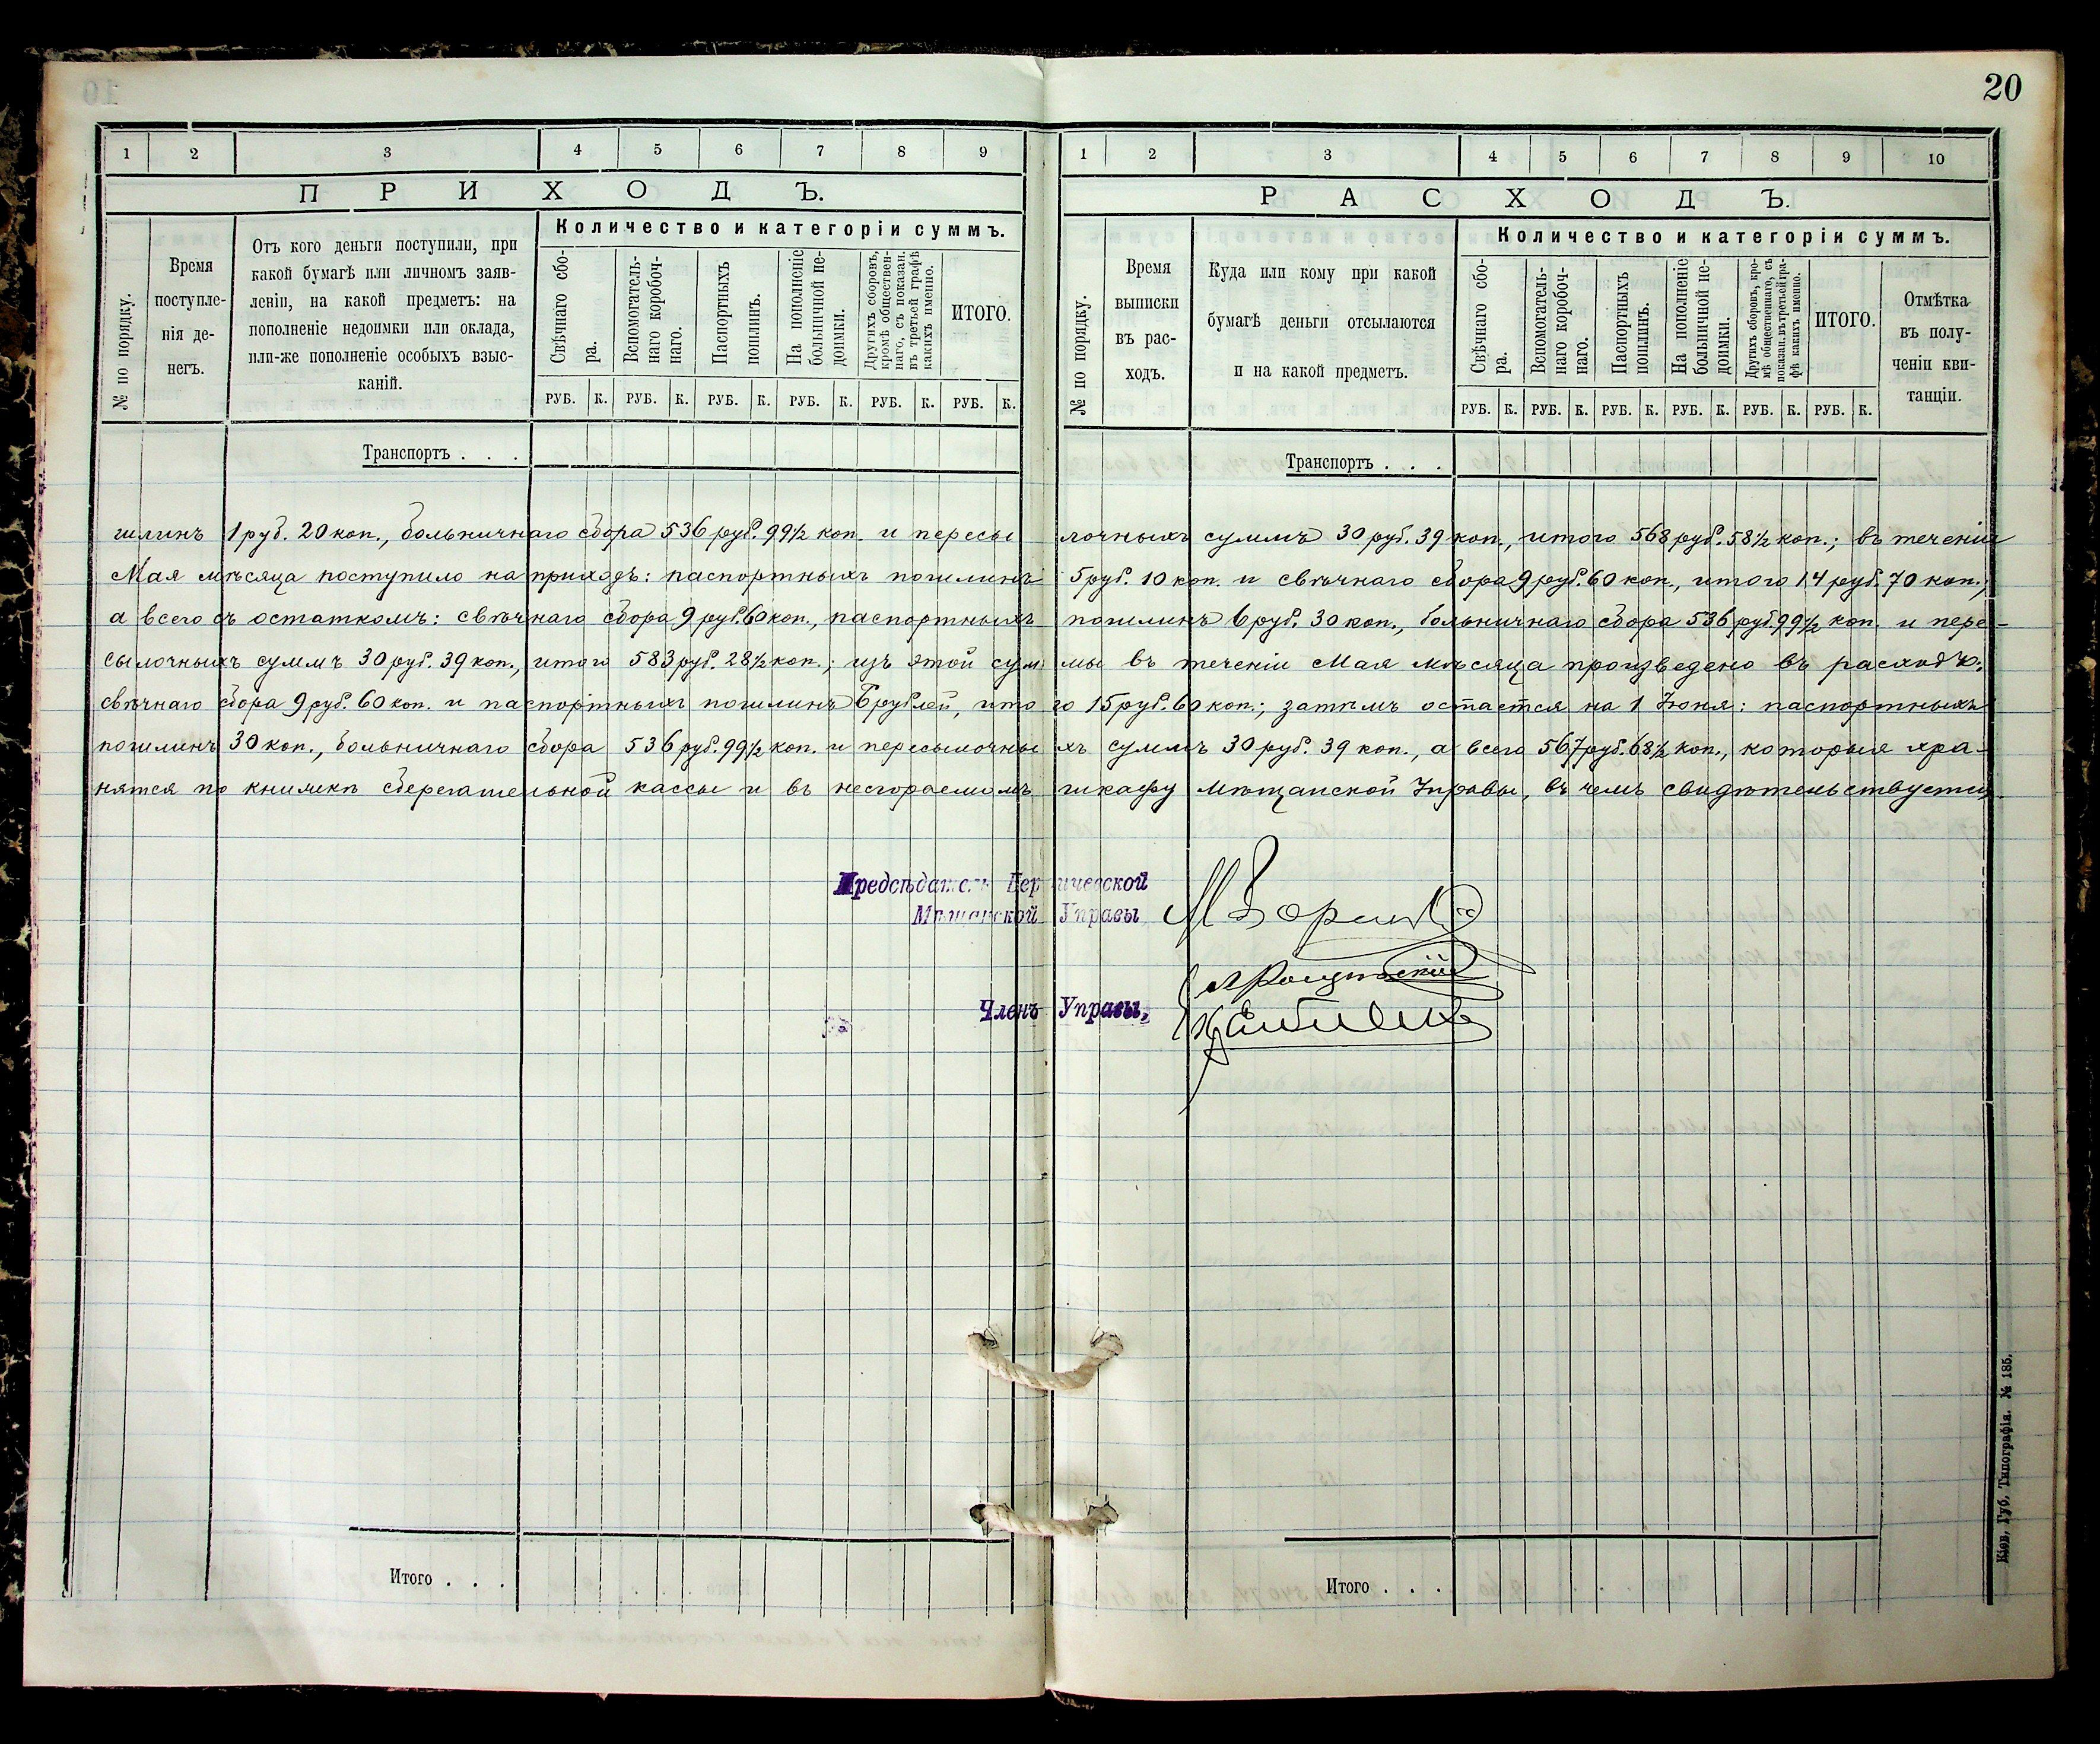 20
1 2 3 4 5 6 7 8 9
ПРИХОДЪ.
Количество и категоріи суммъ.
№ по порядку.
Время поступле-
нія де-
негъ.
Отъ кого деньги поступили, при
какой бумагѣ или личномъ заяв-
леніи, на какой предметъ: на
пополненіе недоимки или оклада,
или-же пополненіе особыхъ взыс-
каній.
Свѣчнаго сбо-
ра.
Вспомогатель-
наго коробоч-
наго.
Паспортныхъ
пошлинъ.
На пополненіе
больничной не-
доимки.
Другихъ сборовъ,
кромѣ обществен-
наго, съ показан.
въ третьей графѣ
какихъ именно.
ИТОГО.
РУБ. К. РУБ. К. РУБ. К. РУБ. К. РУБ. К. РУБ. К.
Транспортъ . . .
1 2 3 4 5 6 7 8 9 10
РАСХОДЪ.
Количество и категоріи суммъ.
№ по порядку.
Время
выписки
въ рас-
ходъ.
Куда или кому при какой
бумагѣ деньги отсылаются
и на какой предметъ.
Свѣчнаго сбо-
ра.
Вспомогатель-
наго коробоч-
наго.
Паспортныхъ
пошлинъ.
На пополненіе
больничной не-
доимки.
Другихъ сборовъ, кро-
мѣ общественнаго, съ
показан. въ третьей гра-
фѣ какихъ именно.
ИТОГО.
Отмѣтка
въ полу-
ченіи кви-
танціи.
РУБ. К. РУБ. К. РУБ. К. РУБ. К. РУБ. К. РУБ. К.
Транспортъ . . .
шлинъ 1 руб. 20 коп., больничнаго сбора 536 руб. 99½ коп. и пересы лочныхъ суммъ 30 руб. 39 коп., итого 568 руб. 58½ коп.; въ теченіи
Мая мѣсяца поступило на приходъ: паспортныхъ пошлинъ 5 руб. 10 коп. и свѣчнаго сбора 9 руб. 60 коп., итого 14 руб. 70 коп.,
а всего съ остаткомъ: свѣчнаго сбора 9 руб. 60 коп., паспортныхъ пошлинъ 6 руб. 30 коп., больничнаго сбора 536 руб. 99½ коп. и пере-
сылочныхъ суммъ 30 руб. 39 коп., итого 583 руб. 28½ коп.; изъ этой сум мы въ теченіи Мая мѣсяца произведено въ расходъ:
свѣчнаго сбора 9 руб. 60 коп. и паспортныхъ пошлинъ 6 рублей, ито го 15 руб. 60 коп.; затѣмъ остается на 1 Іюня: паспортныхъ
пошлинъ 30 коп., больничнаго сбора 536 руб. 99½ коп. и пересылочны хъ суммъ 30 руб. 39 коп., а всего 567 руб. 68½ коп., которыя хра-
нятся по книжкѣ сберегательной кассы и въ несгораемомъ шкафу Мѣщанской Управы, въ чемъ свидѣтельствуется.
Предсѣдатель Бердичевской
Мѣщанской Управы
Членъ Управы,
Итого . . .
Итого . . .
Кіев. Губ. Типографія. № 185.